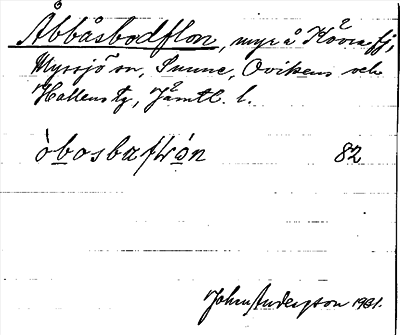 Åbbåsbodflon, myr å Kövra fj,
Myssjö sn, Sunne, Ovikens och
Hallens tg, Jämtl. l.
òbosbaflrón 82
Johan Anderzson 1931.